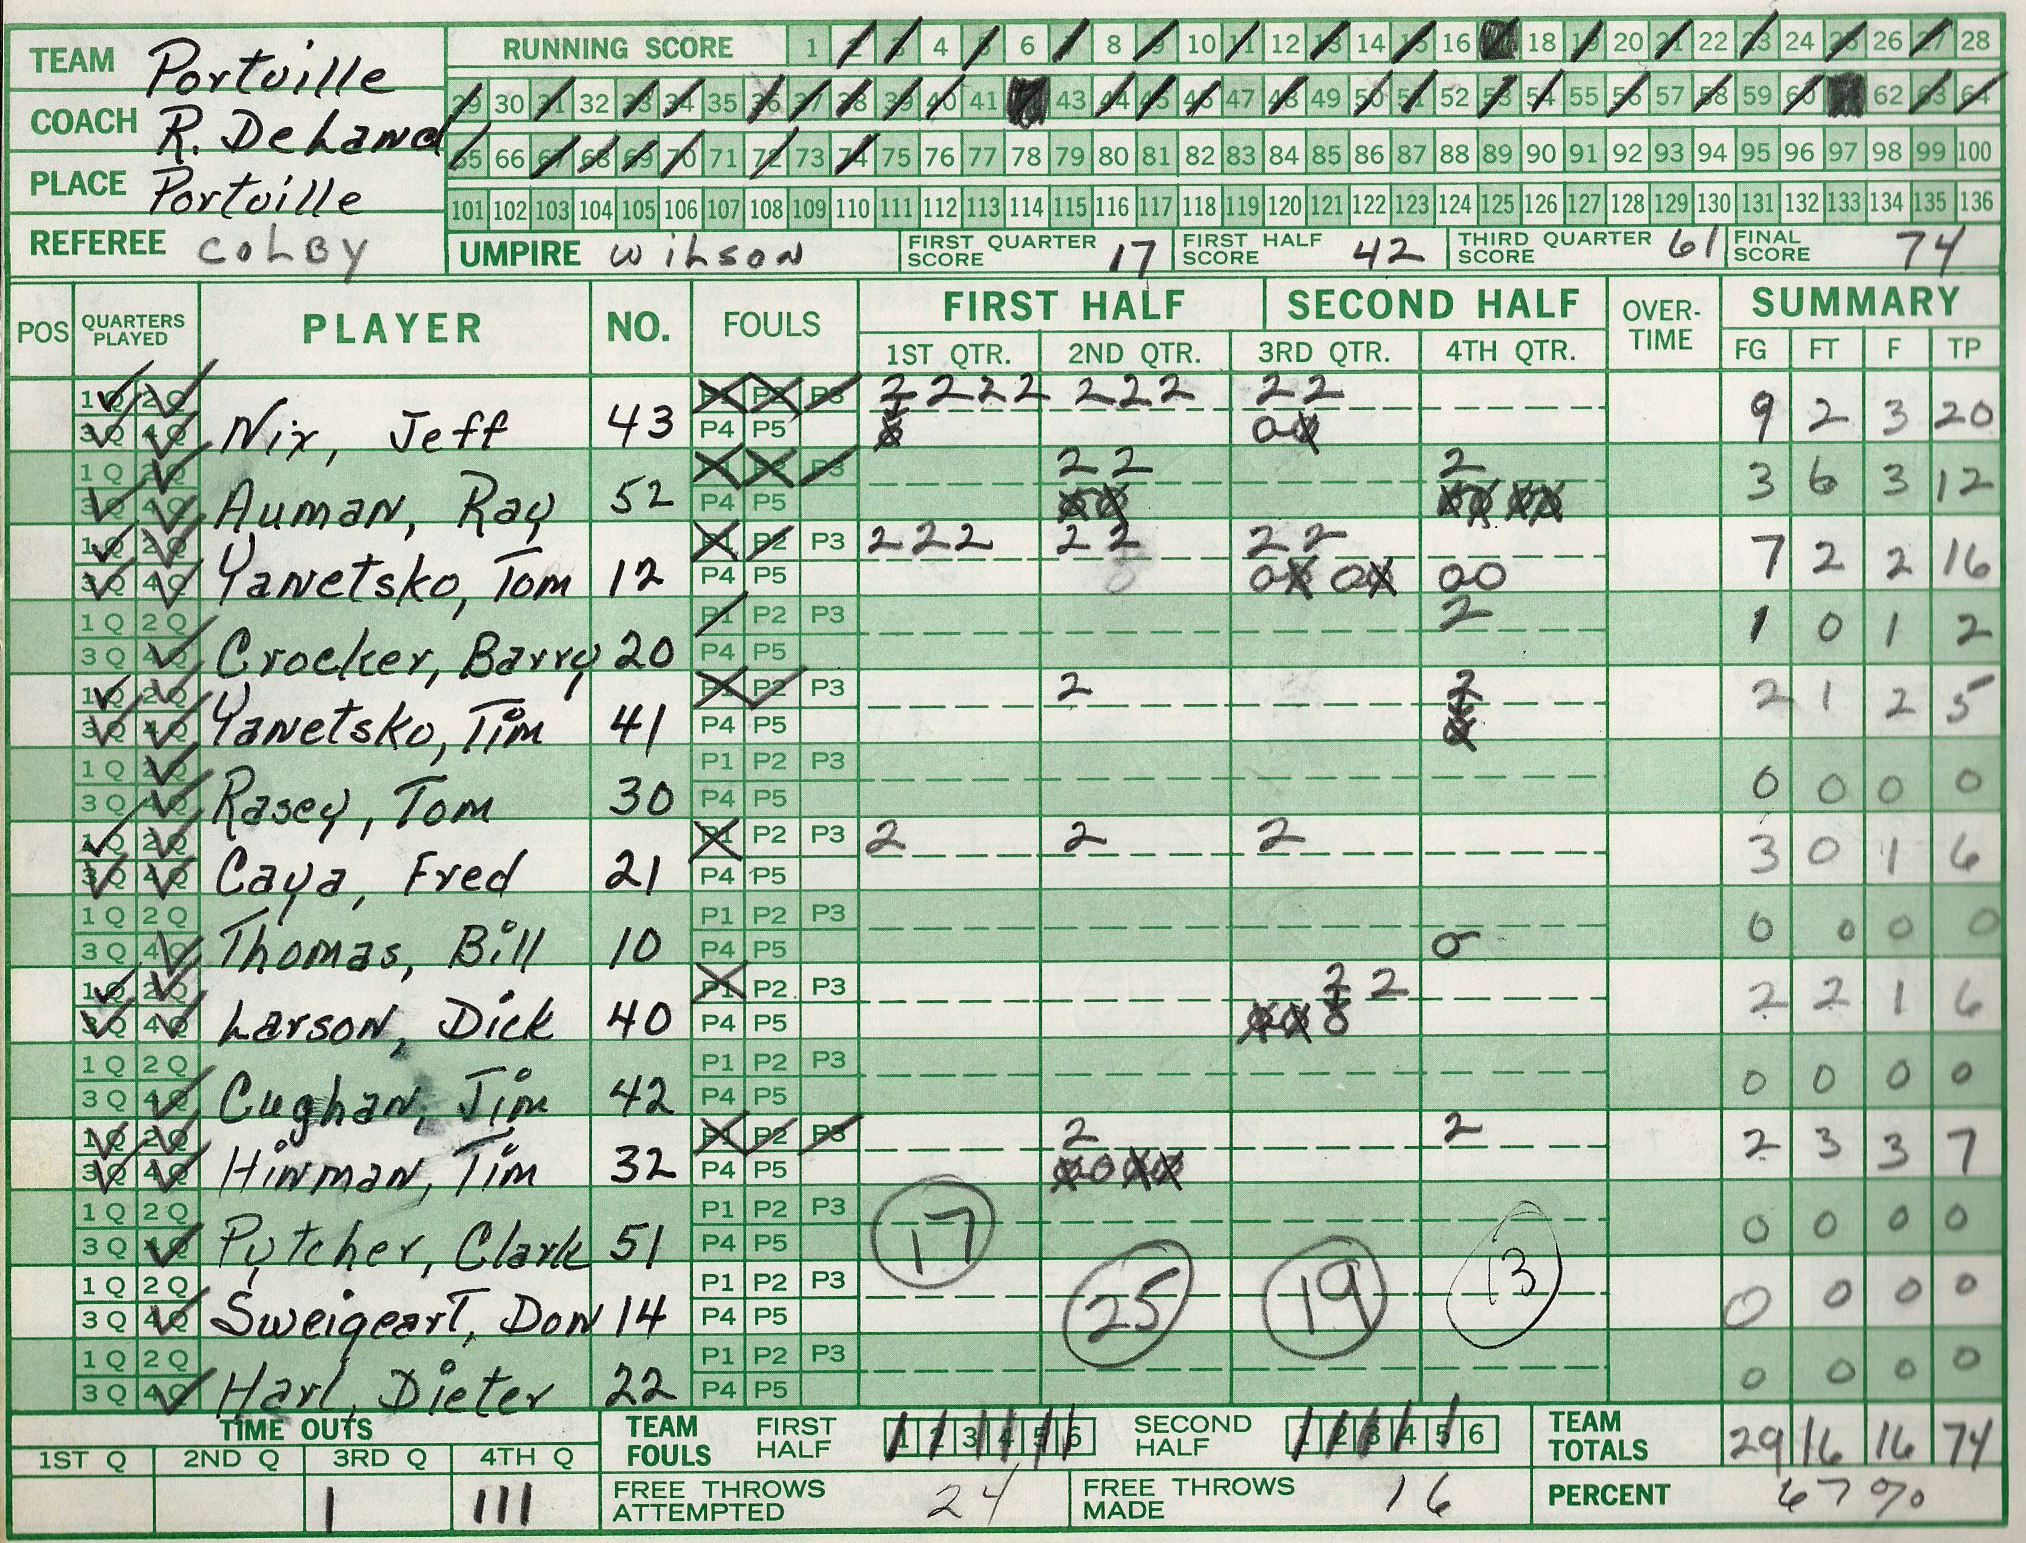 TEAM Portville
RUNNING SCORE 1 2 3 4 5 6 7 8 9 10 11 12 13 14 15 16 17 18 19 20 21 22 23 24 25 26 27 28
COACH R. DeLand
29 30 31 32 33 34 35 36 37 38 39 40 41 42 43 44 45 46 47 48 49 50 51 52 53 54 55 56 57 58 59 60 61 62 63 64
65 66 67 68 69 70 71 72 73 74 75 76 77 78 79 80 81 82 83 84 85 86 87 88 89 90 91 92 93 94 95 96 97 98 99 100
PLACE Portville
101 102 103 104 105 106 107 108 109 110 111 112 113 114 115 116 117 118 119 120 121 122 123 124 125 126 127 128 129 130 131 132 133 134 135 136
REFEREE COLBY UMPIRE Wilson FIRST QUARTER SCORE 17 FIRST HALF SCORE 42 THIRD QUARTER SCORE 61 FINAL SCORE 74
POS QUARTERS PLAYED PLAYER NO. FOULS FIRST HALF SECOND HALF OVER-TIME SUMMARY
1ST QTR. 2ND QTR. 3RD QTR. 4TH QTR. FG FT F TP
1Q 2Q P1 P2 P3 2 2 2 2 2 2 2 2 2
3Q 4Q Nix, Jeff 43 P4 P5 0 0 0 9 2 3 20
1Q 2Q P1 P2 P3 2 2 2
3Q 4Q Auman, Ray 52 P4 P5 0 0 0 0 0 0 3 6 3 12
1Q 2Q P1 P2 P3 2 2 2 2 2 2 2
3Q 4Q Yanetsko, Tom 12 P4 P5 0 0 0 0 0 0 7 2 2 16
1Q 2Q P1 P2 P3 2
3Q 4Q Crocker, Barry 20 P4 P5 1 0 1 2
1Q 2Q P1 P2 P3 2 2
3Q 4Q Yanetsko, Tim 41 P4 P5 0 2 1 2 5
1Q 2Q P1 P2 P3
3Q 4Q Rasey, Tom 30 P4 P5 0 0 0 0
1Q 2Q P1 P2 P3 2 2 2
3Q 4Q Caya, Fred 21 P4 P5 3 0 1 6
1Q 2Q P1 P2 P3
3Q 4Q Thomas, Bill 10 P4 P5 0 0 0 0 0
1Q 2Q P1 P2 P3 2 2
3Q 4Q Larson, Dick 40 P4 P5 0 0 0 2 2 1 6
1Q 2Q P1 P2 P3
3Q 4Q Cughan, Jim 42 P4 P5 0 0 0 0
1Q 2Q P1 P2 P3 2 2
3Q 4Q Hinman, Tim 32 P4 P5 0 0 0 0 2 3 3 7
1Q 2Q P1 P2 P3
3Q 4Q Putcher, Clark 51 P4 P5 17 0 0 0 0
1Q 2Q P1 P2 P3
3Q 4Q Sweigeart, Don 14 P4 P5 25 19 13 0 0 0 0
1Q 2Q P1 P2 P3
3Q 4Q Harl, Dieter 22 P4 P5 0 0 0 0
TIME OUTS TEAM FOULS FIRST HALF 1 2 3 4 5 6 SECOND HALF 1 2 3 4 5 6 TEAM TOTALS 29 16 16 74
1ST Q 2ND Q 3RD Q 4TH Q
I III FREE THROWS ATTEMPTED 24 FREE THROWS MADE 16 PERCENT 67%